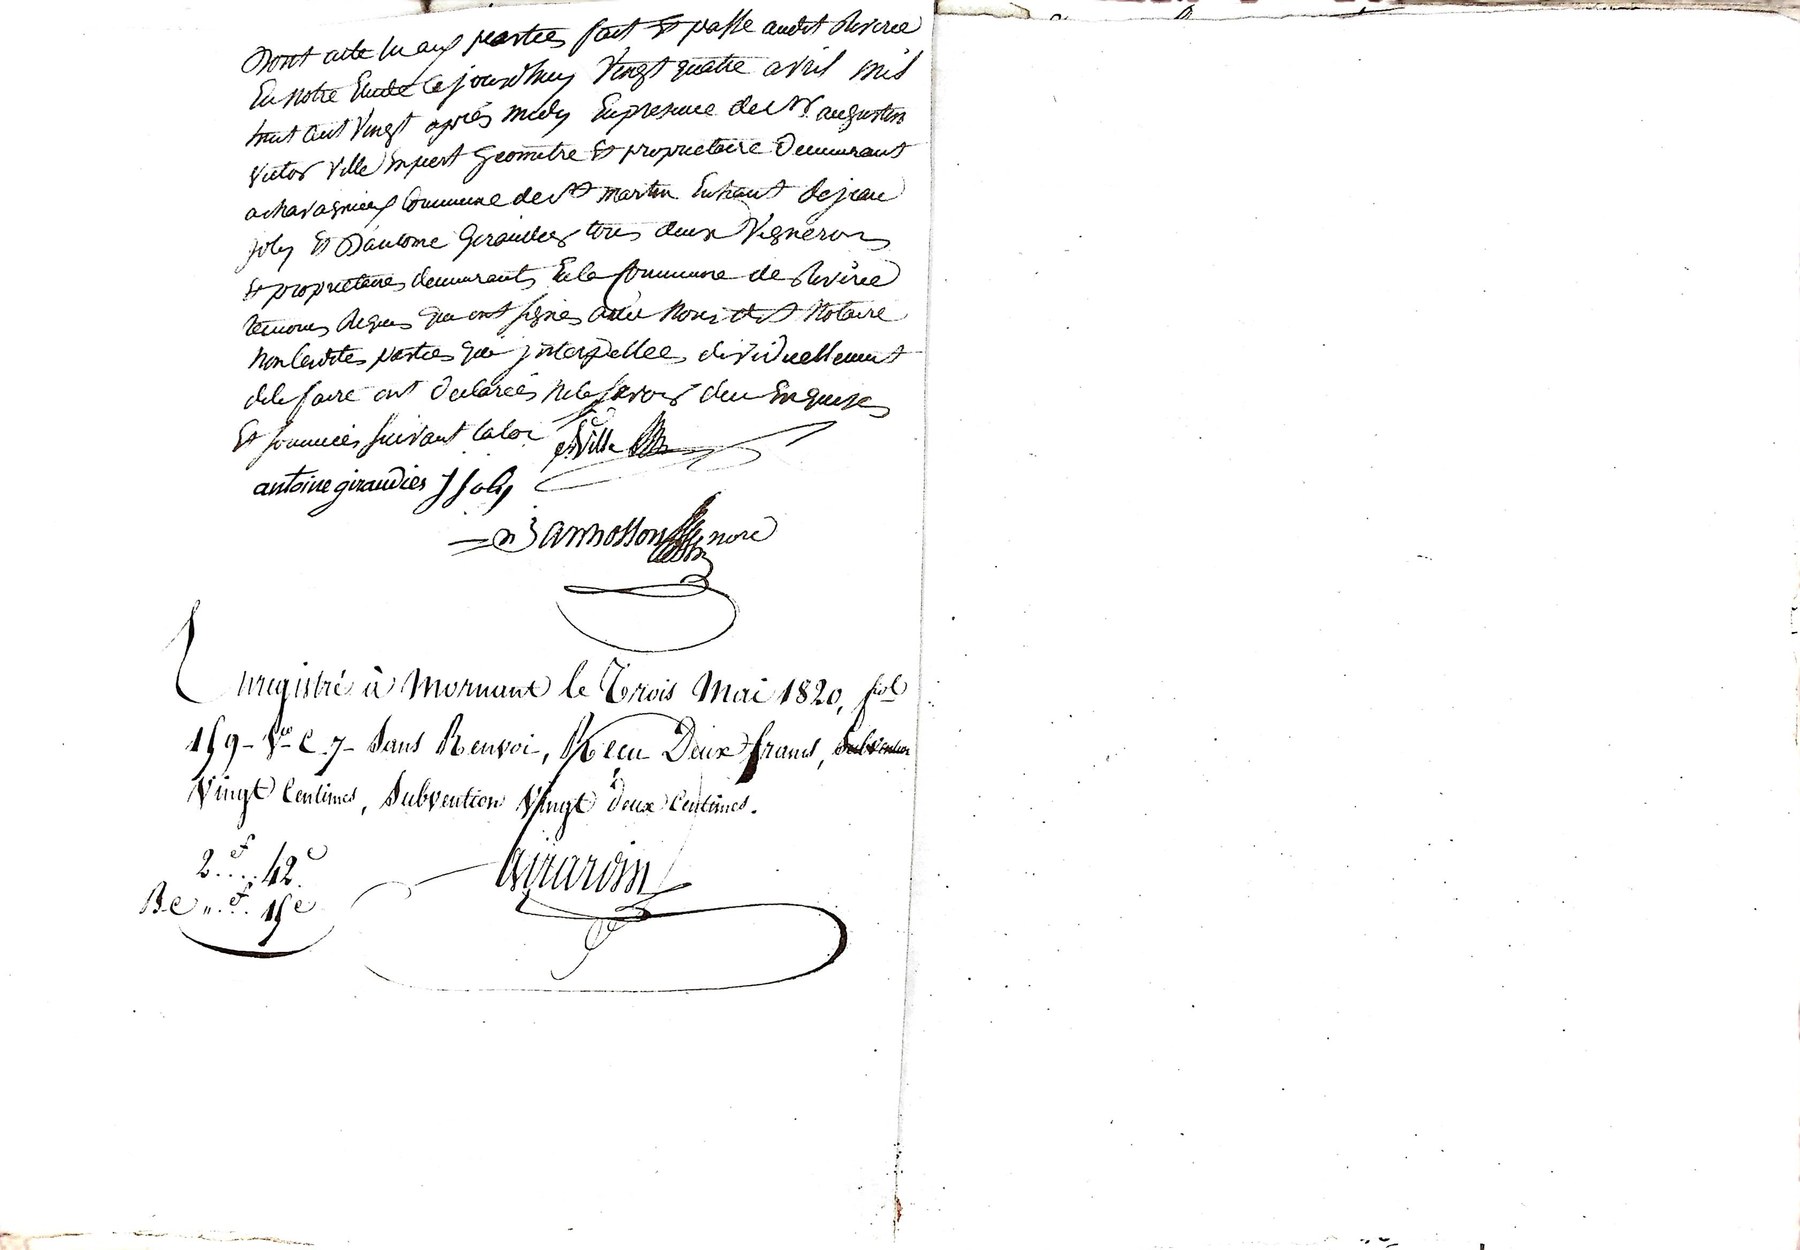 Dont acte lu aux parties fait et passé audit Riverie
En notre Etude Ce jourd'huy Vingt quatre avril mil
huit cent Vingt après midy En presence de Sr augustin
victor ville Expert Geomètre et proprietaire Demeurant
a chavagnieux Commune de St martin Enhaut de jean
joly Et d'antoine Giraudier tous deux Vignerons
Et proprietaires demeurants En la Commune de Riverie
temoins Requis qui ont signés avec Nous dit Notaire
Non lesdites parties qui interpellées dividuellement
de le faire ont declarées ne le savoir de ce Enquises
Et sommées suivant la loi AVille
antoine giraudier J Joly
nore
Enregistré à Mornant le Trois Mai 1820, fol
159 Vo C 7 Sans Renvoi, Reçu Deux francs, Subvention
Vingt Centimes, Subvention Vingt deux Centimes.
2 f 42 c
Girardin
15 c